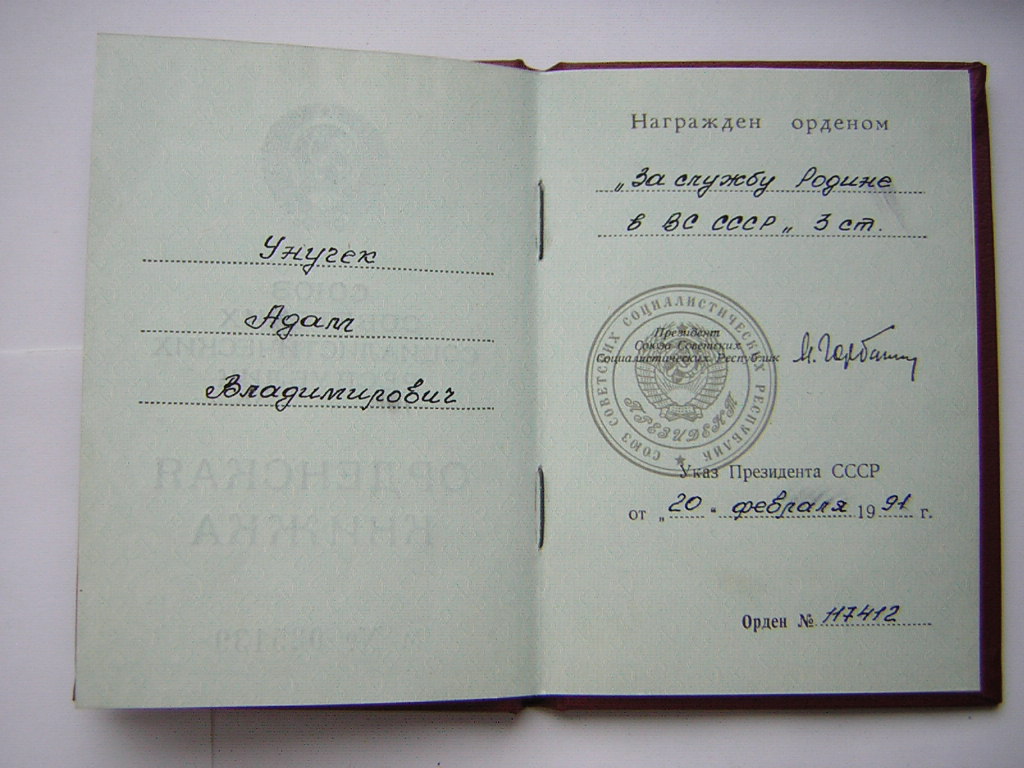 Унучек
Адам
Владимирович
Награжден орденом
„За службу Родине
в ВС СССР„ 3 ст.
СОЮЗ СОВЕТСКИХ СОЦИАЛИСТИЧЕСКИХ РЕСПУБЛИК
ПРЕЗИДЕНТ
Президент
Союза Советских
Социалистических Республик
М. Горбачев
Указ Президента СССР
от „20" февраля 1991 г.
Орден № 117412